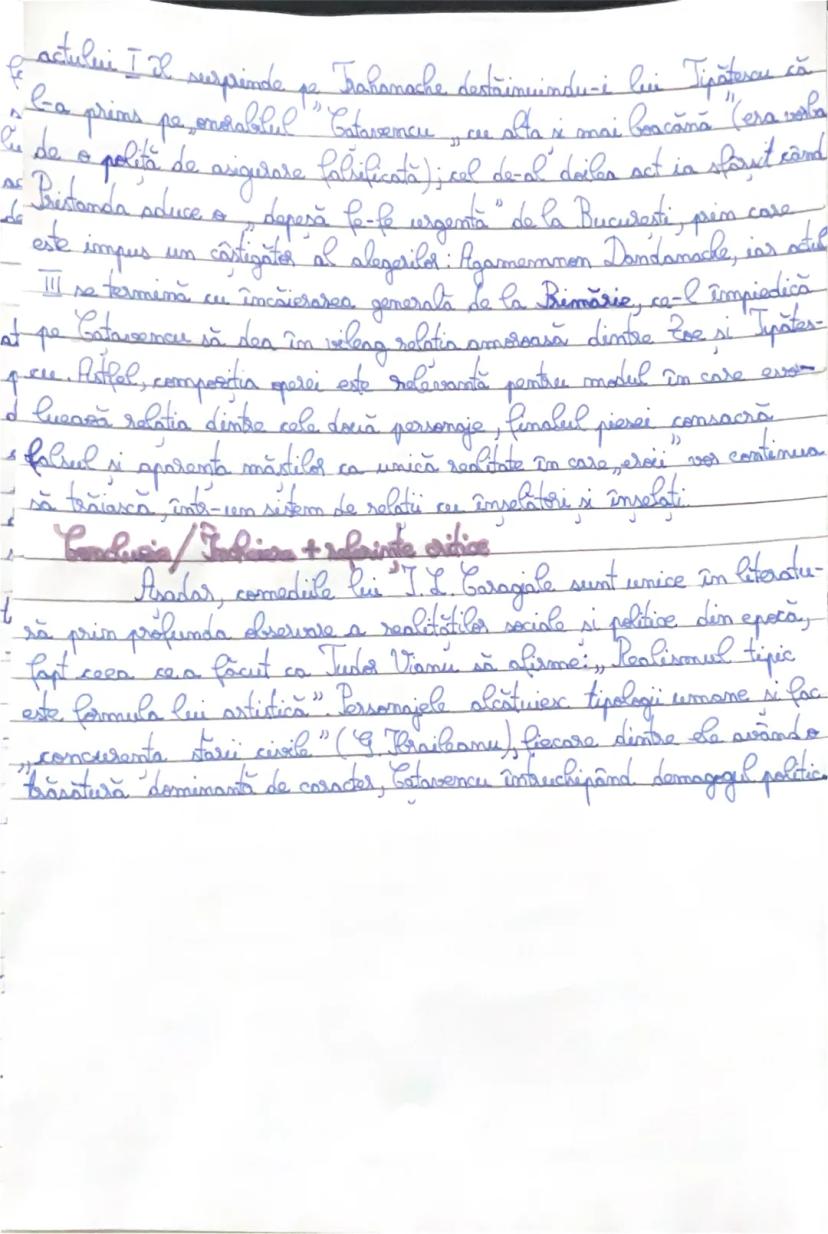 actului I îl surprinde pe Trahanache destăinuindu-i lui Tipătescu că
l-a prins pe „onorabilul" Catavencu „cu alta și mai boacănă" (era vorba
de o poliță de asigurare falsificată); cel de-al doilea act ia sfârșit când
Pristanda aduce o „depeșă fe-fe urgentă" de la București, prin care
este impus un câștigător al alegerilor: Agamemnon Dandanache, iar actul
III se termină cu încăierarea generală de la Primărie, ce-l împiedică
pe Catavencu să dea în vileag relația amoroasă dintre Zoe și Tipătes-
cu. Astfel, compoziția operei este relevantă pentru modul în care evo-
luează relația dintre cele două personaje, finalul piesei consacră
falsul și aparența măștilor ca unică realitate în care „eroii" vor continua
să trăiască, într-un sistem de relații cu înșelători și înșelați.
Concluzia/Încheierea + referințe critice
Așadar, comediile lui I.L. Caragiale sunt unice în literatu-
ră prin profunda observare a realităților sociale și politice din epocă,
fapt ceea ce a făcut ca Tudor Vianu să afirme: „Realismul tipic
este formula lui artistică". Personajele alcătuiesc tipologii umane și fac
„concurența stării civile" (G. Ibraileanu), fiecare dintre ele având o
trăsătură dominantă de caracter, Catavencu întruchipând demagogul politic.